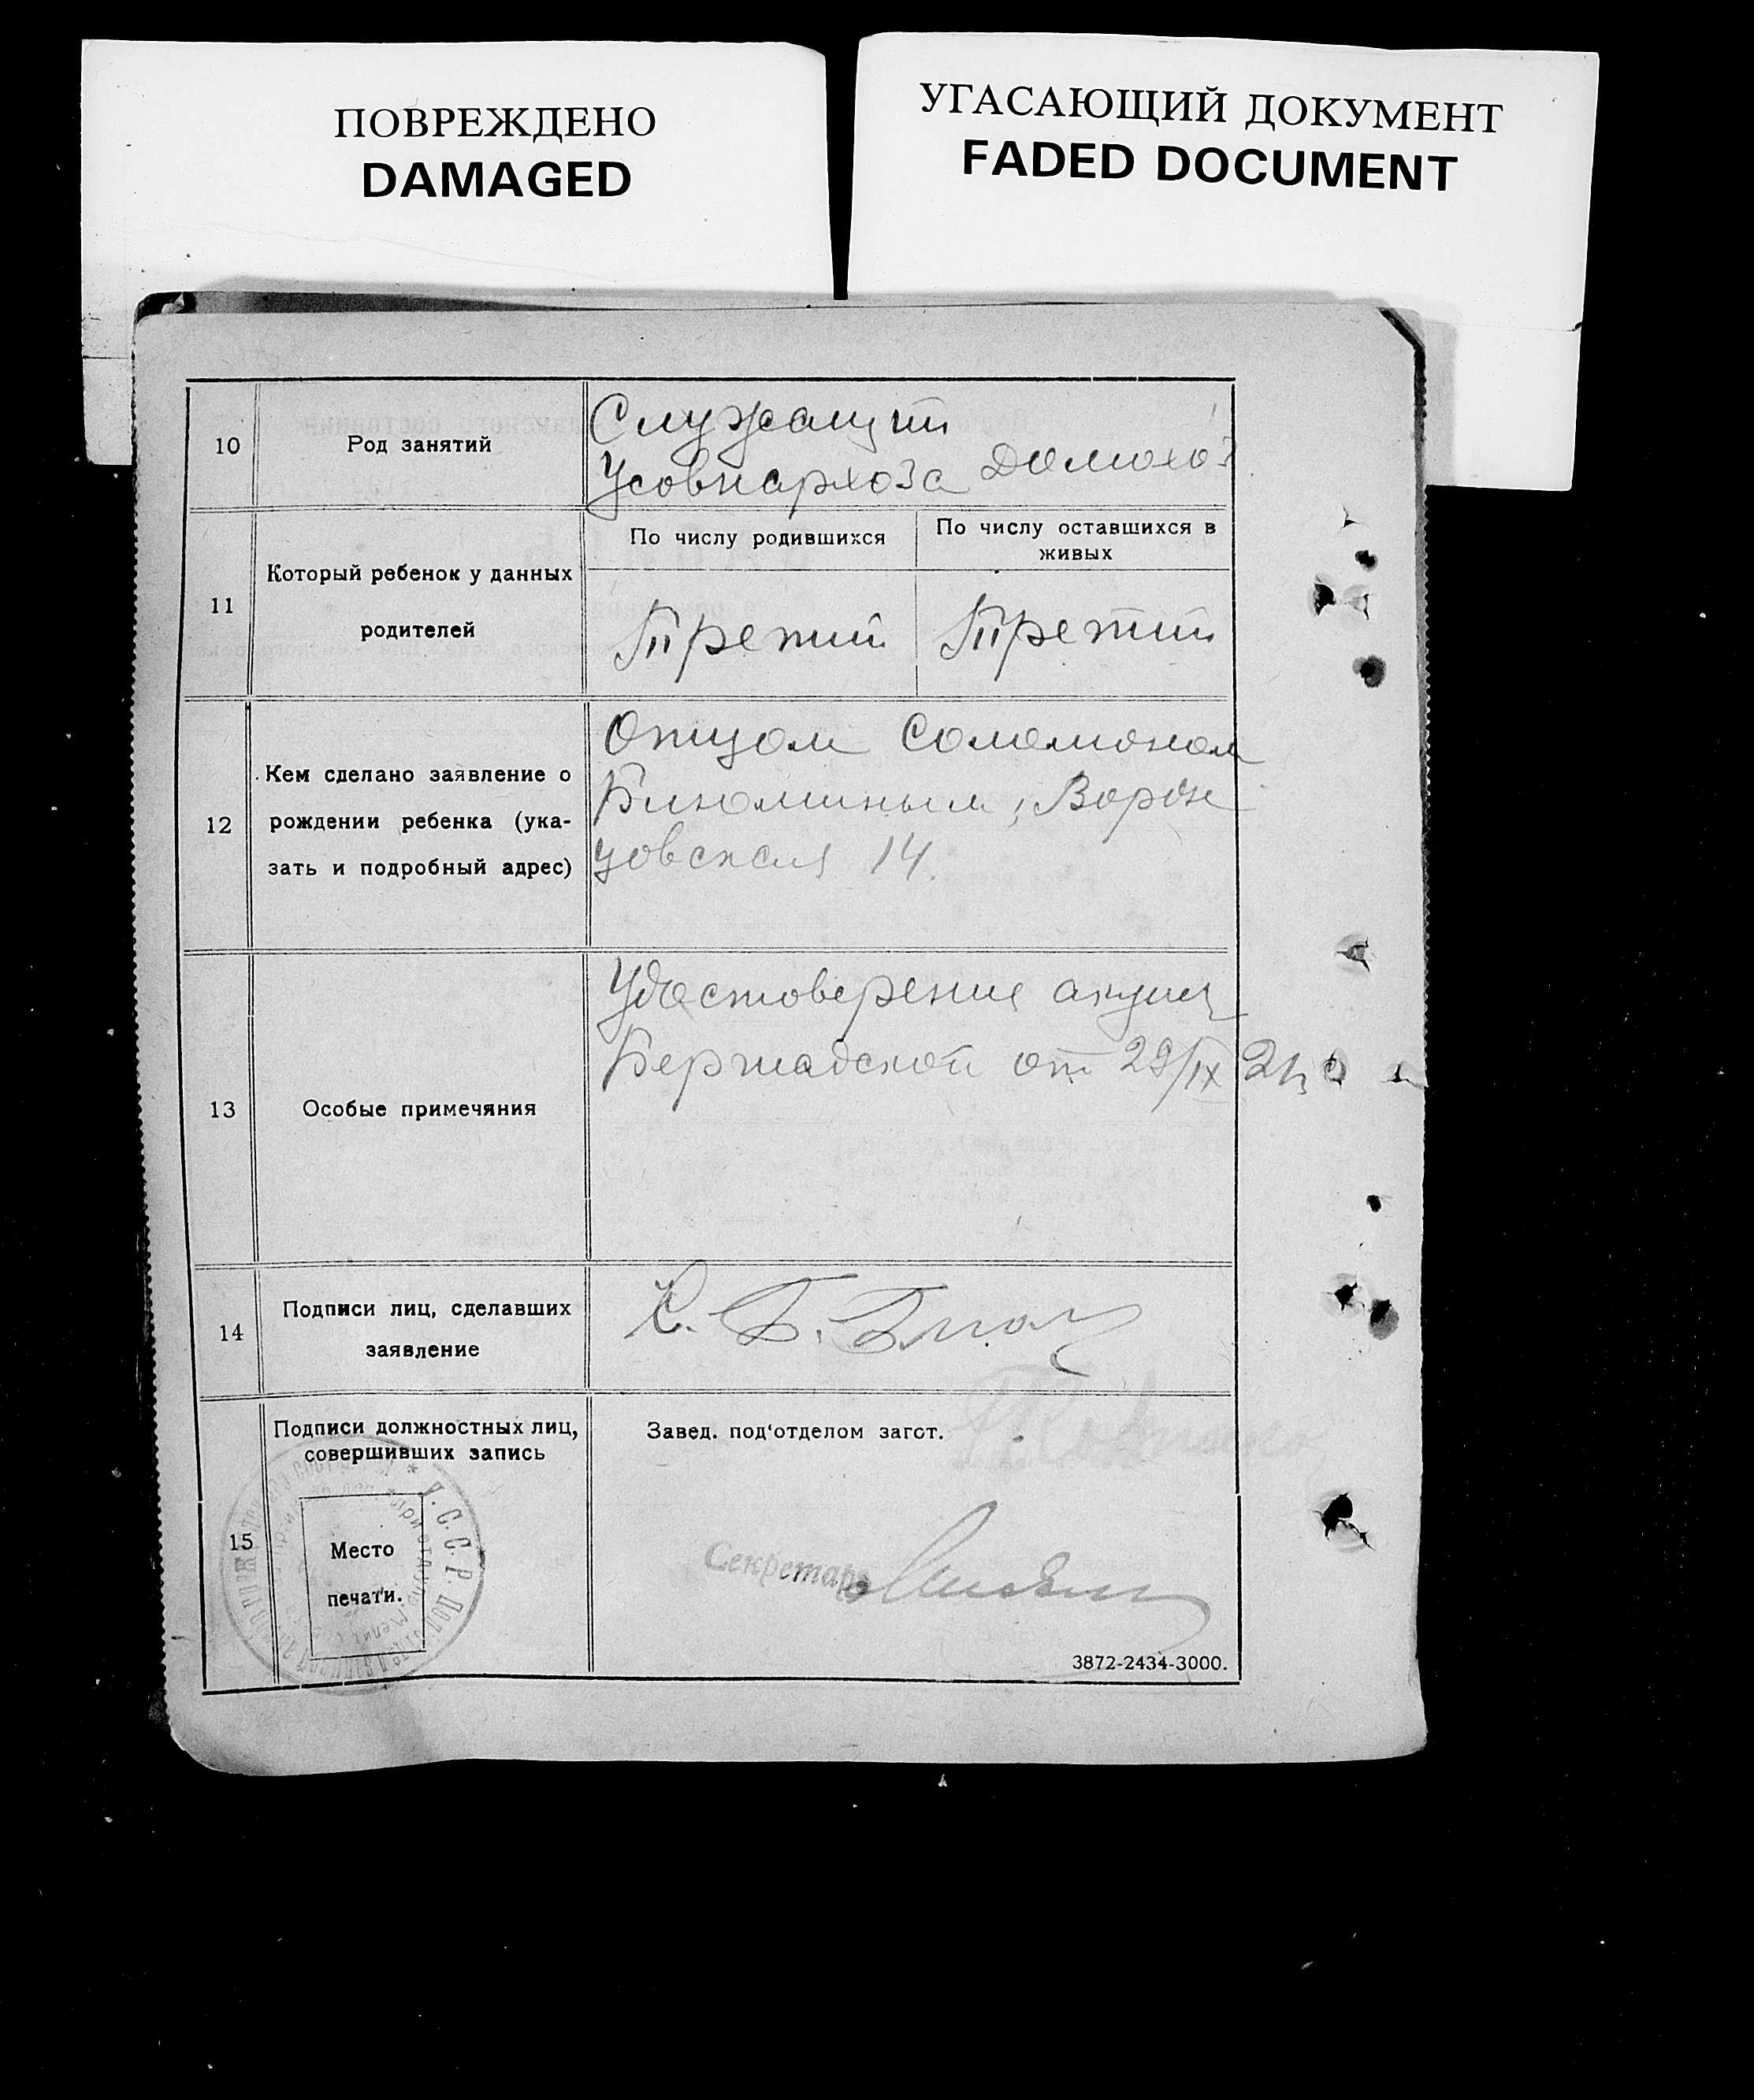 ПОВРЕЖДЕНО
DAMAGED
УГАСАЮЩИЙ ДОКУМЕНТ
FADED DOCUMENT
10
Род занятий
Служащий
Усовнархоза
Домохоз
11
Который ребенок у данных
родителей
По числу родившихся
Третий
По числу оставшихся в
живых
Третий
12
Кем сделано заявление о
рождении ребенка (ука-
зать и подробный адрес)
Отцом Соломоном
Биномином, Ворон
цовская 14.
13
Особые примечяния
Удостоверение акуш
Бершадской от 29/IX 21
14
Подписи лиц, сделавших
заявление
15
Подписи должностных лиц,
совершивших запись
Место
печати.
Завед. под'отделом загст.
Секретарь
3872-2434-3000.